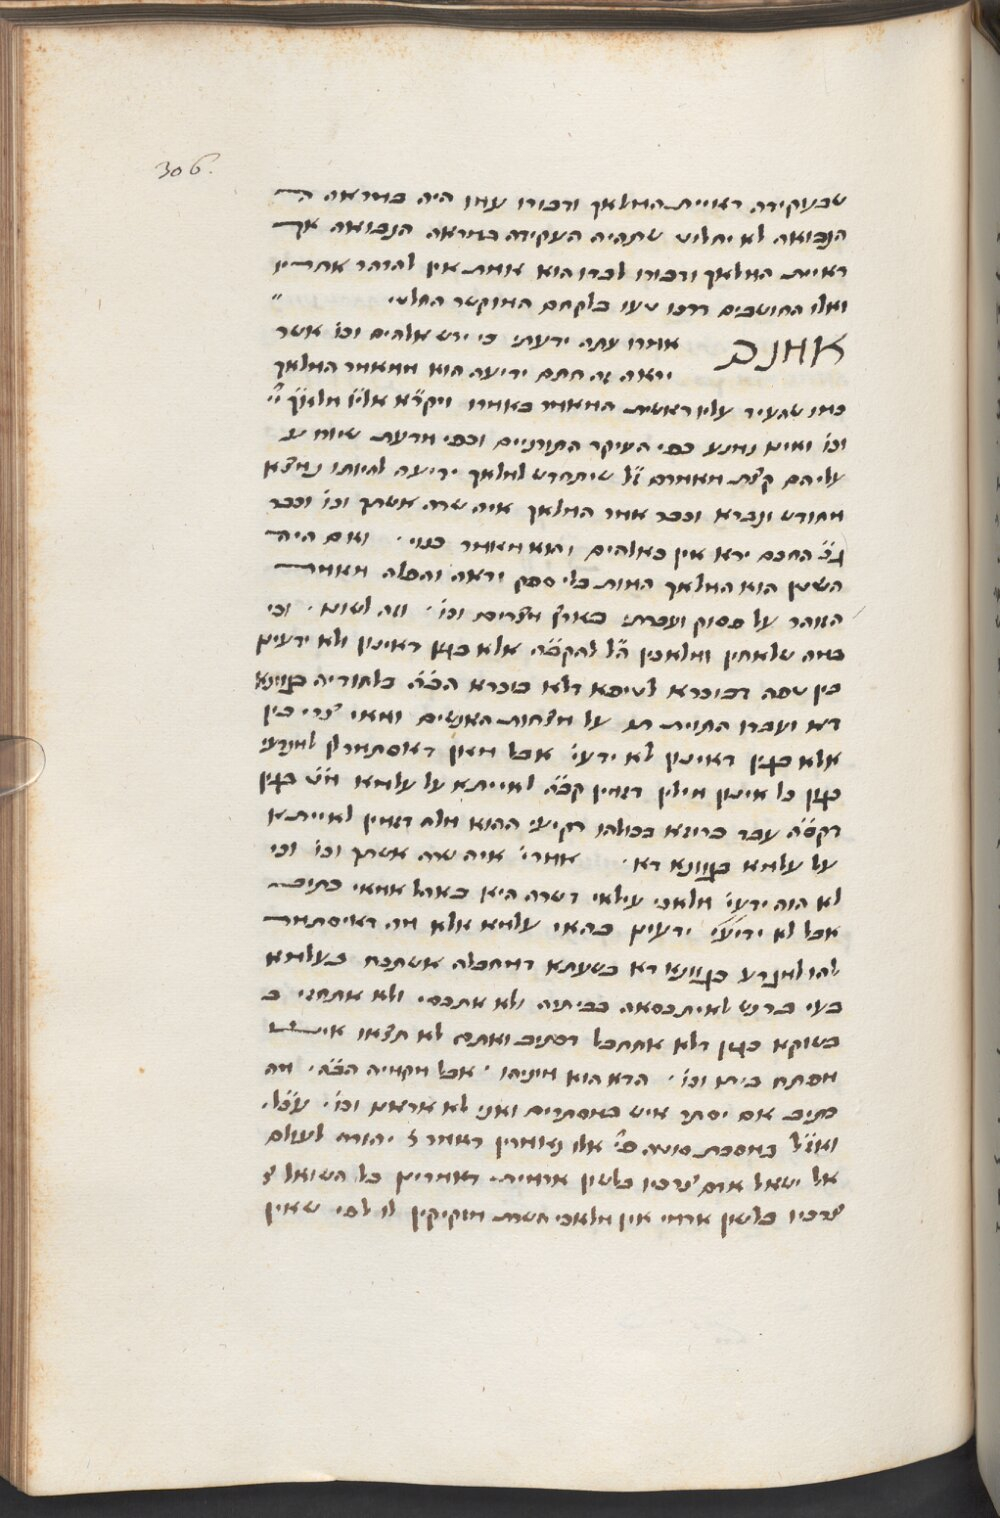 306.
שבעקידה ראויית המלאך ודבורו עמו היה במראה ה
הנבואה לא יחלוט שתהיה העקידה במראה הנבואה אך
ראיית המלאך ודבורו לבדו הוא אמת אין להרהר אחריו
ואלו החושבים דרכו טעו בלקחם המוקשר החלטי "
אמנם אמרו עתה ידעתי כי ירש אלהים וכו' אשר
יראה זה חתם ידיעה הוא ממאמר המלאך
כמו שהעיד עליו ראשית המאמר באמרו ויקרא אליו מלאך יי'
וכו' ואיש נמנע כפי העיקר התורניים וכפי הדעת שיוח
עליהם קצת מאמרם ז"ל שיתחדש למלאך ידיעה להיותו נמצא
מחודש ונברא וכבר אמר המלאך איה שרה אשתך וכו' וכבר
החכם ירא אין באלהים והוא מאמר כנוי . ואם היה
השטן הוא המלאך המות בלי ספק יראה והפלא מאמר
הזוהר על פסוק ועברתי בארץ מצרים וכו' . וזה לשונו . וכי
כמה שלוחין ומלאכין ה"ל להקב"ה אלא בגין דאינון ולא ידעין
בין טפה דבוכרא לטיפא דלא בוכרא הב"ה בלחודיה כגוונא
דא ועברו התוית תו על מצחות האנשים ואמאי צריכין
אלא בגין דאינון לא ידעי' אבל מאן דאסתמרן למנדעי
כגון כל אינון מילין דזמין קב"ה לאייתאה על עלמא מ"ט בגין
דקב"ה עבר כרוזא בכולהו רקיעי ההוא מלה דזמין לאייתאה
על עלמא כגוונא דא . אמרי' איה שרה אשתך וכו' וכי
לא הוה ידעי' מלאכי עילאי דשרה היא באהל אמאי כתיב
אבל לא ידעי' ידעין בהאי עלמא אלא מה דאיסתמר
להו למנדע כגוונא דא בשעתא דמחבלא אשתכח בעלמא
בעי בר נש לאיתכסאה בביתיה ולא אתכסי ולא אתחזי ב
בשוקא בגין דלא אתחבל דכתיב ואתם לא תצאו איש
מפתח ביתו וכו' . הדא הוא מיניהו . אבל מקמיה הב"ה . מה
כתיב אם יסתר איש במסתרים ואני לא אראנו וכו' . עכ"ל .
וארז"ל במסכת סוטה פ' אלו נאמרין דאמר ר' יהודה לעולם
אל ישאל אדם צרכיו בלשון ארמית דאמרינן כל השואל צ
צרכיו בלשון ארמי אין מלאכי השרת מזקיקין לו לפי שאין